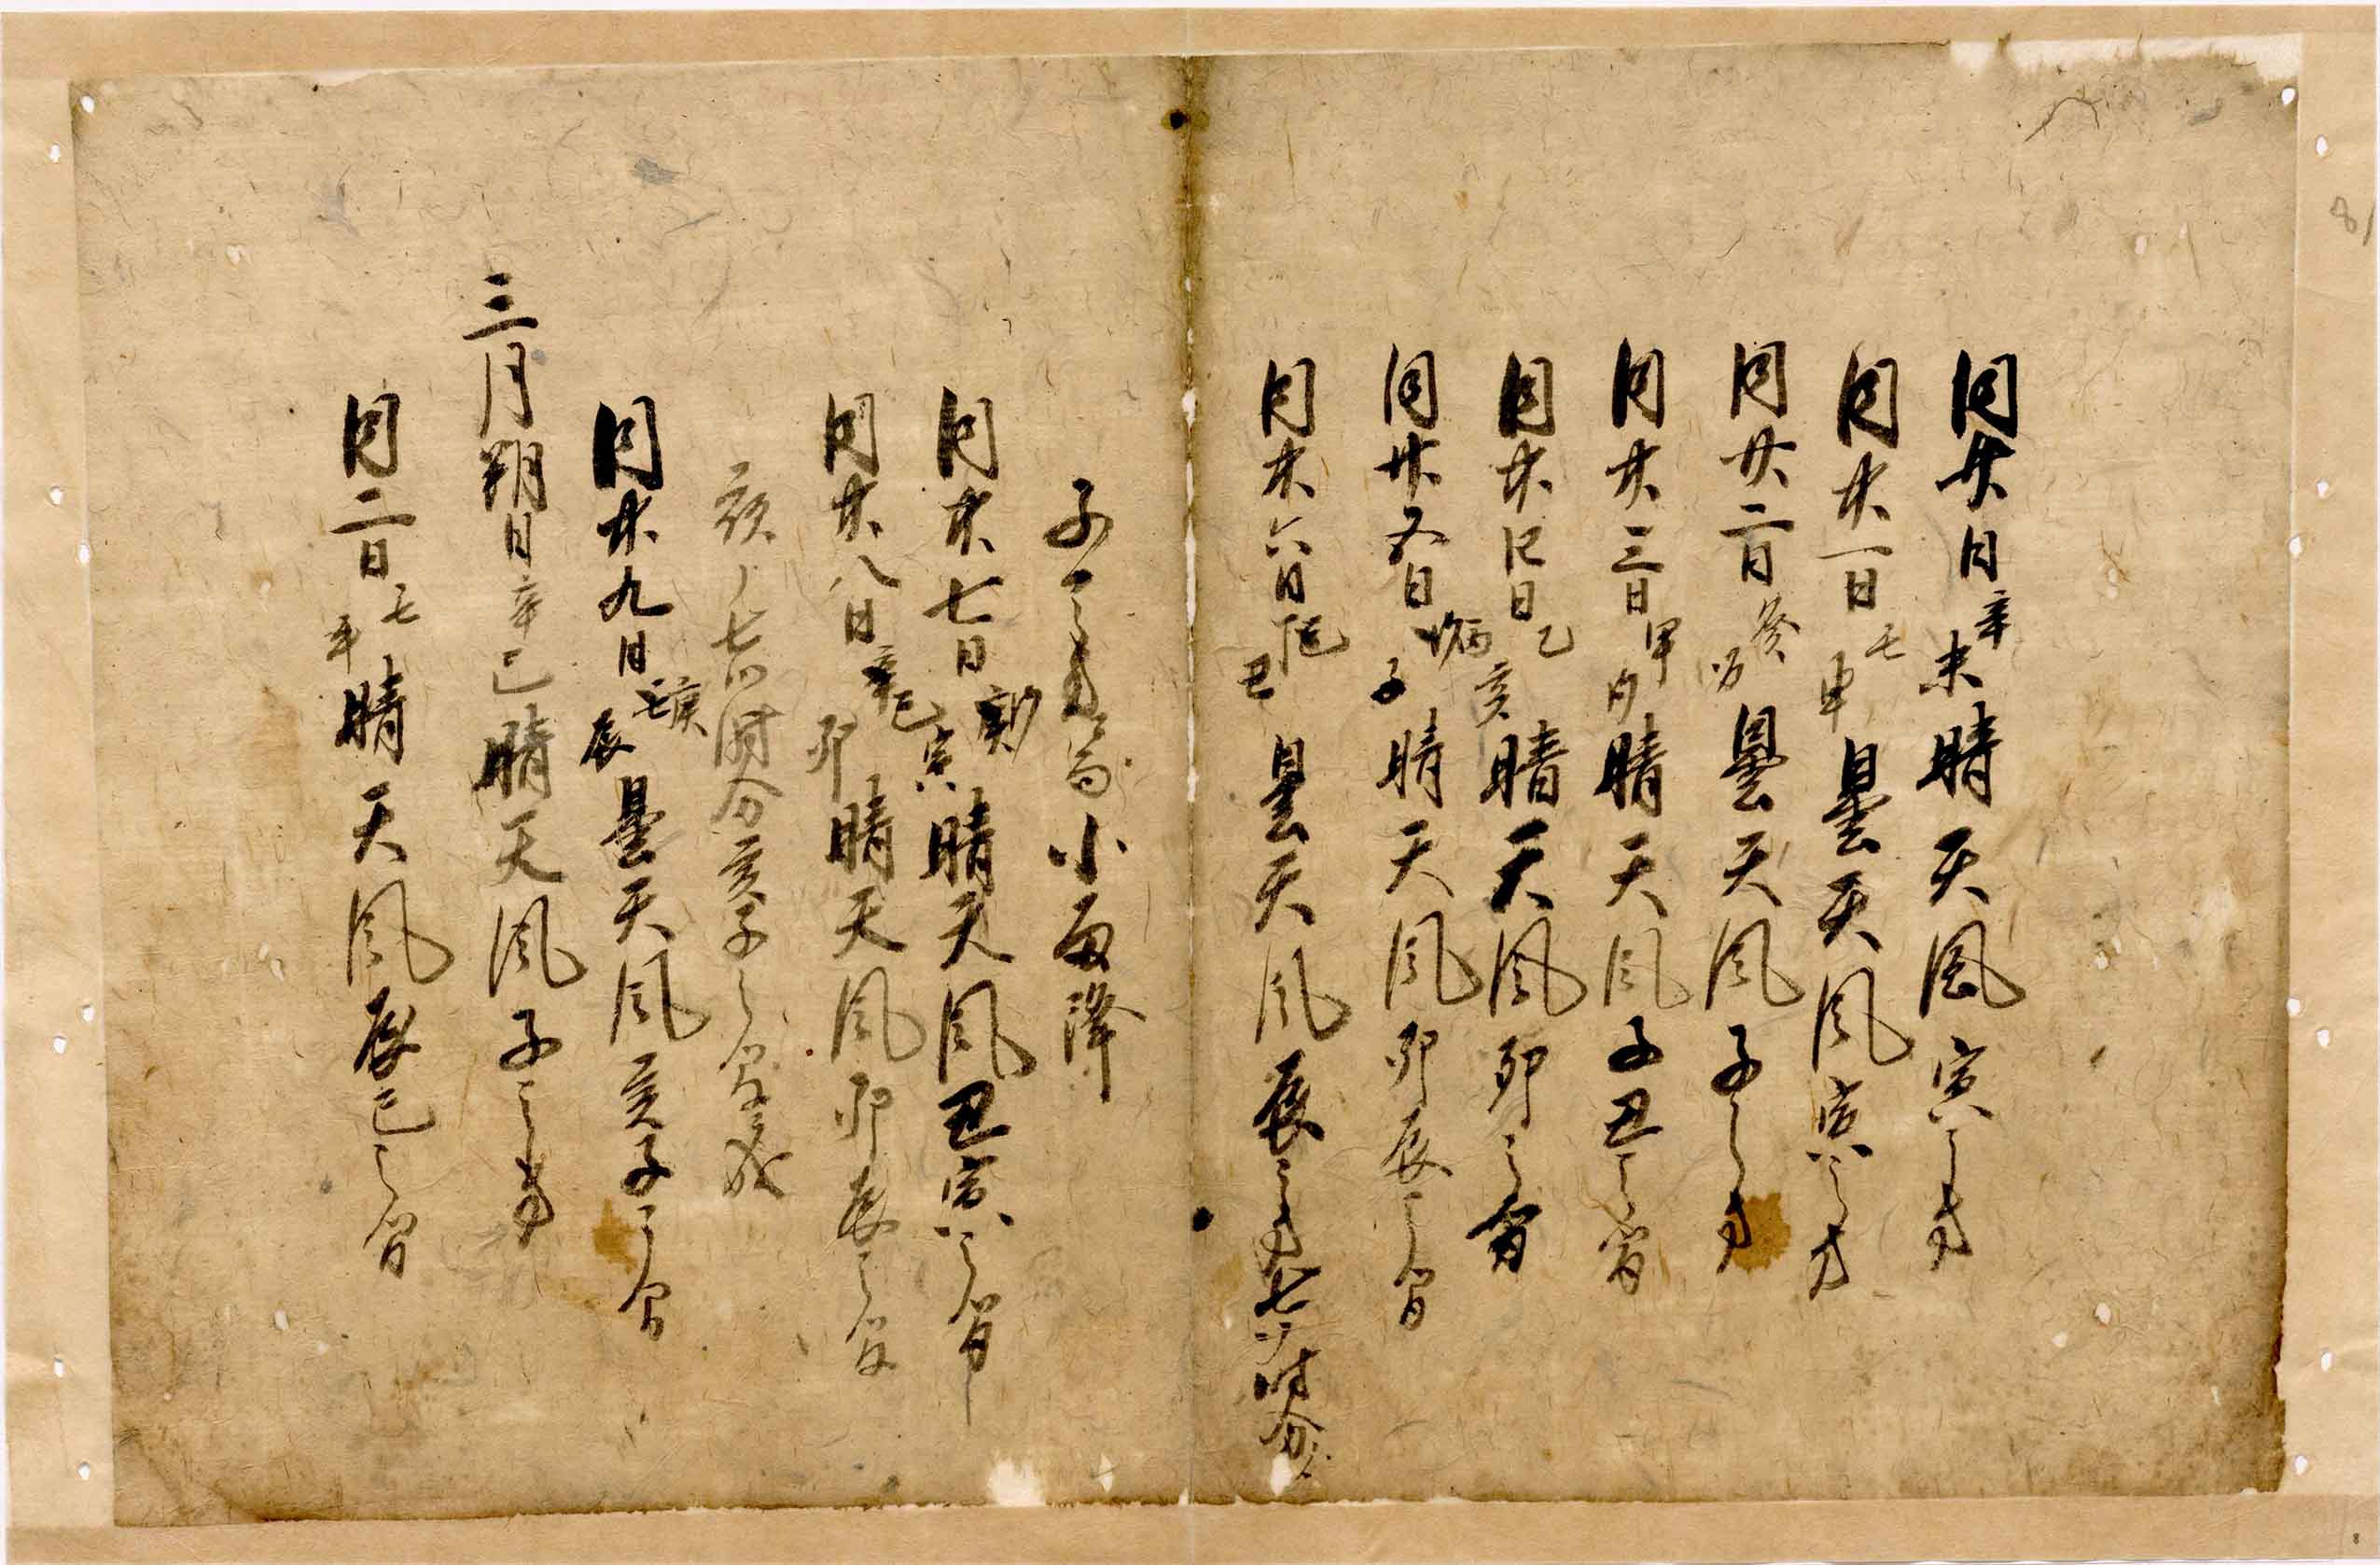 同廿日辛未晴天風寅之方
同廿一日壬申曇天風寅之方
同廿二日癸酉曇天風子之方
同廿三日甲戌晴天風子丑之間
同廿四日乙亥晴天風卯之間
同廿五日丙子晴天風卯辰之間
同廿六日丑曇天風辰之方七ツ時分
子之方小雨降
同廿七日寅晴天風丑寅之間
同廿八日卯晴天風卯辰之間
夜ノ七ツ時分亥子之間
同廿九日辰曇天風亥子之間
三月朔日辛巳晴天風子之方
同二日壬午晴天風辰巳之間
81
8